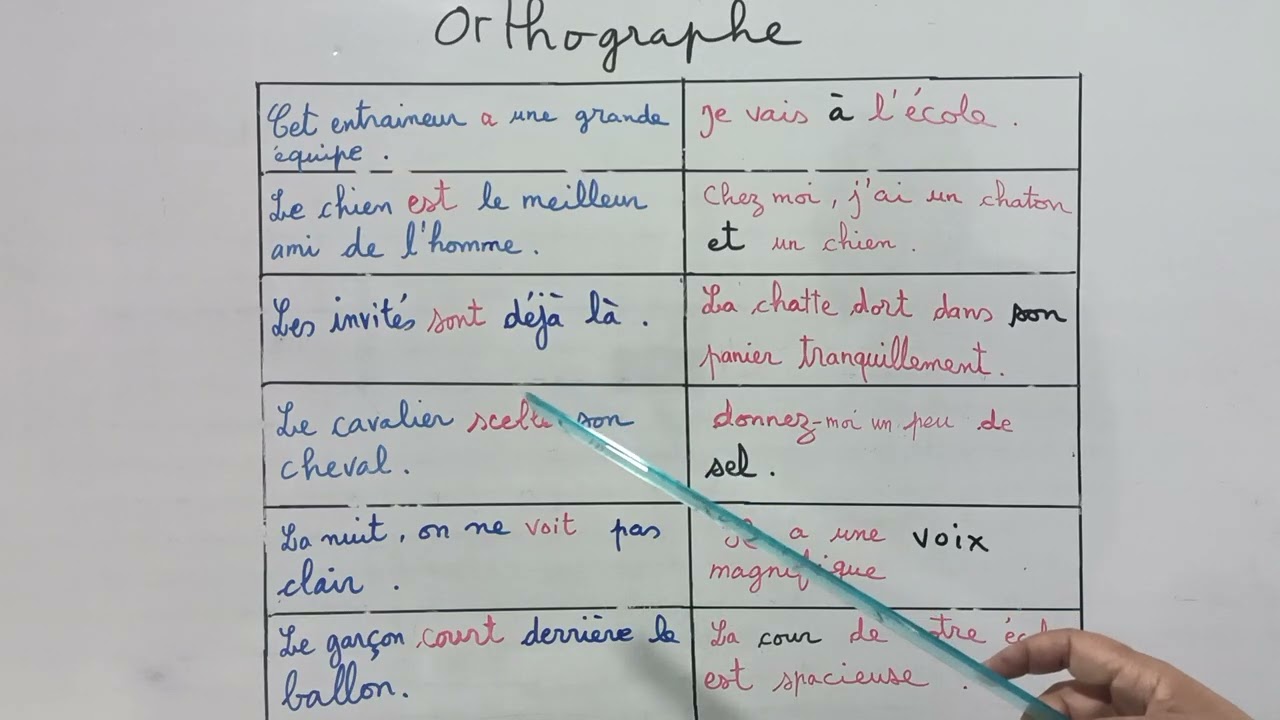 Orthographe
Cet entraineur a une grande
équipe .
Je vais à l'école .
Le chien est le meilleur
ami de l'homme .
Chez moi, j'ai un chaton
et un chien .
Les invités sont déjà là .
La chatte dort dans son
panier tranquillement .
Le cavalier son
cheval .
donnez-moi un peu de
sel .
La nuit, on ne voit pas
clair .
a une voix
magnifique
Le garçon court derrière le
ballon.
La cour de
est spacieuse .